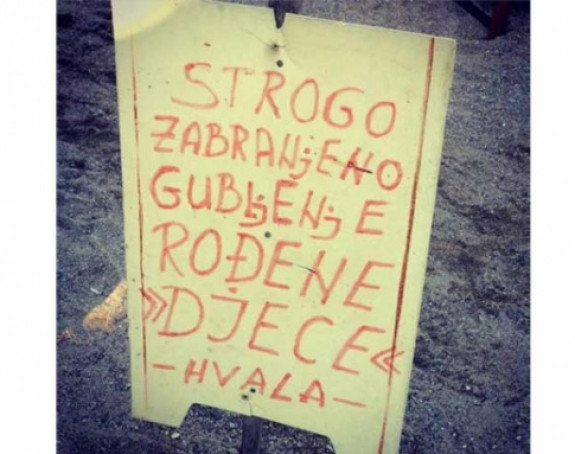 STROGO
ZABRANjENO
GUBLjENjE
ROĐENE
»DJECE«
—HVALA—